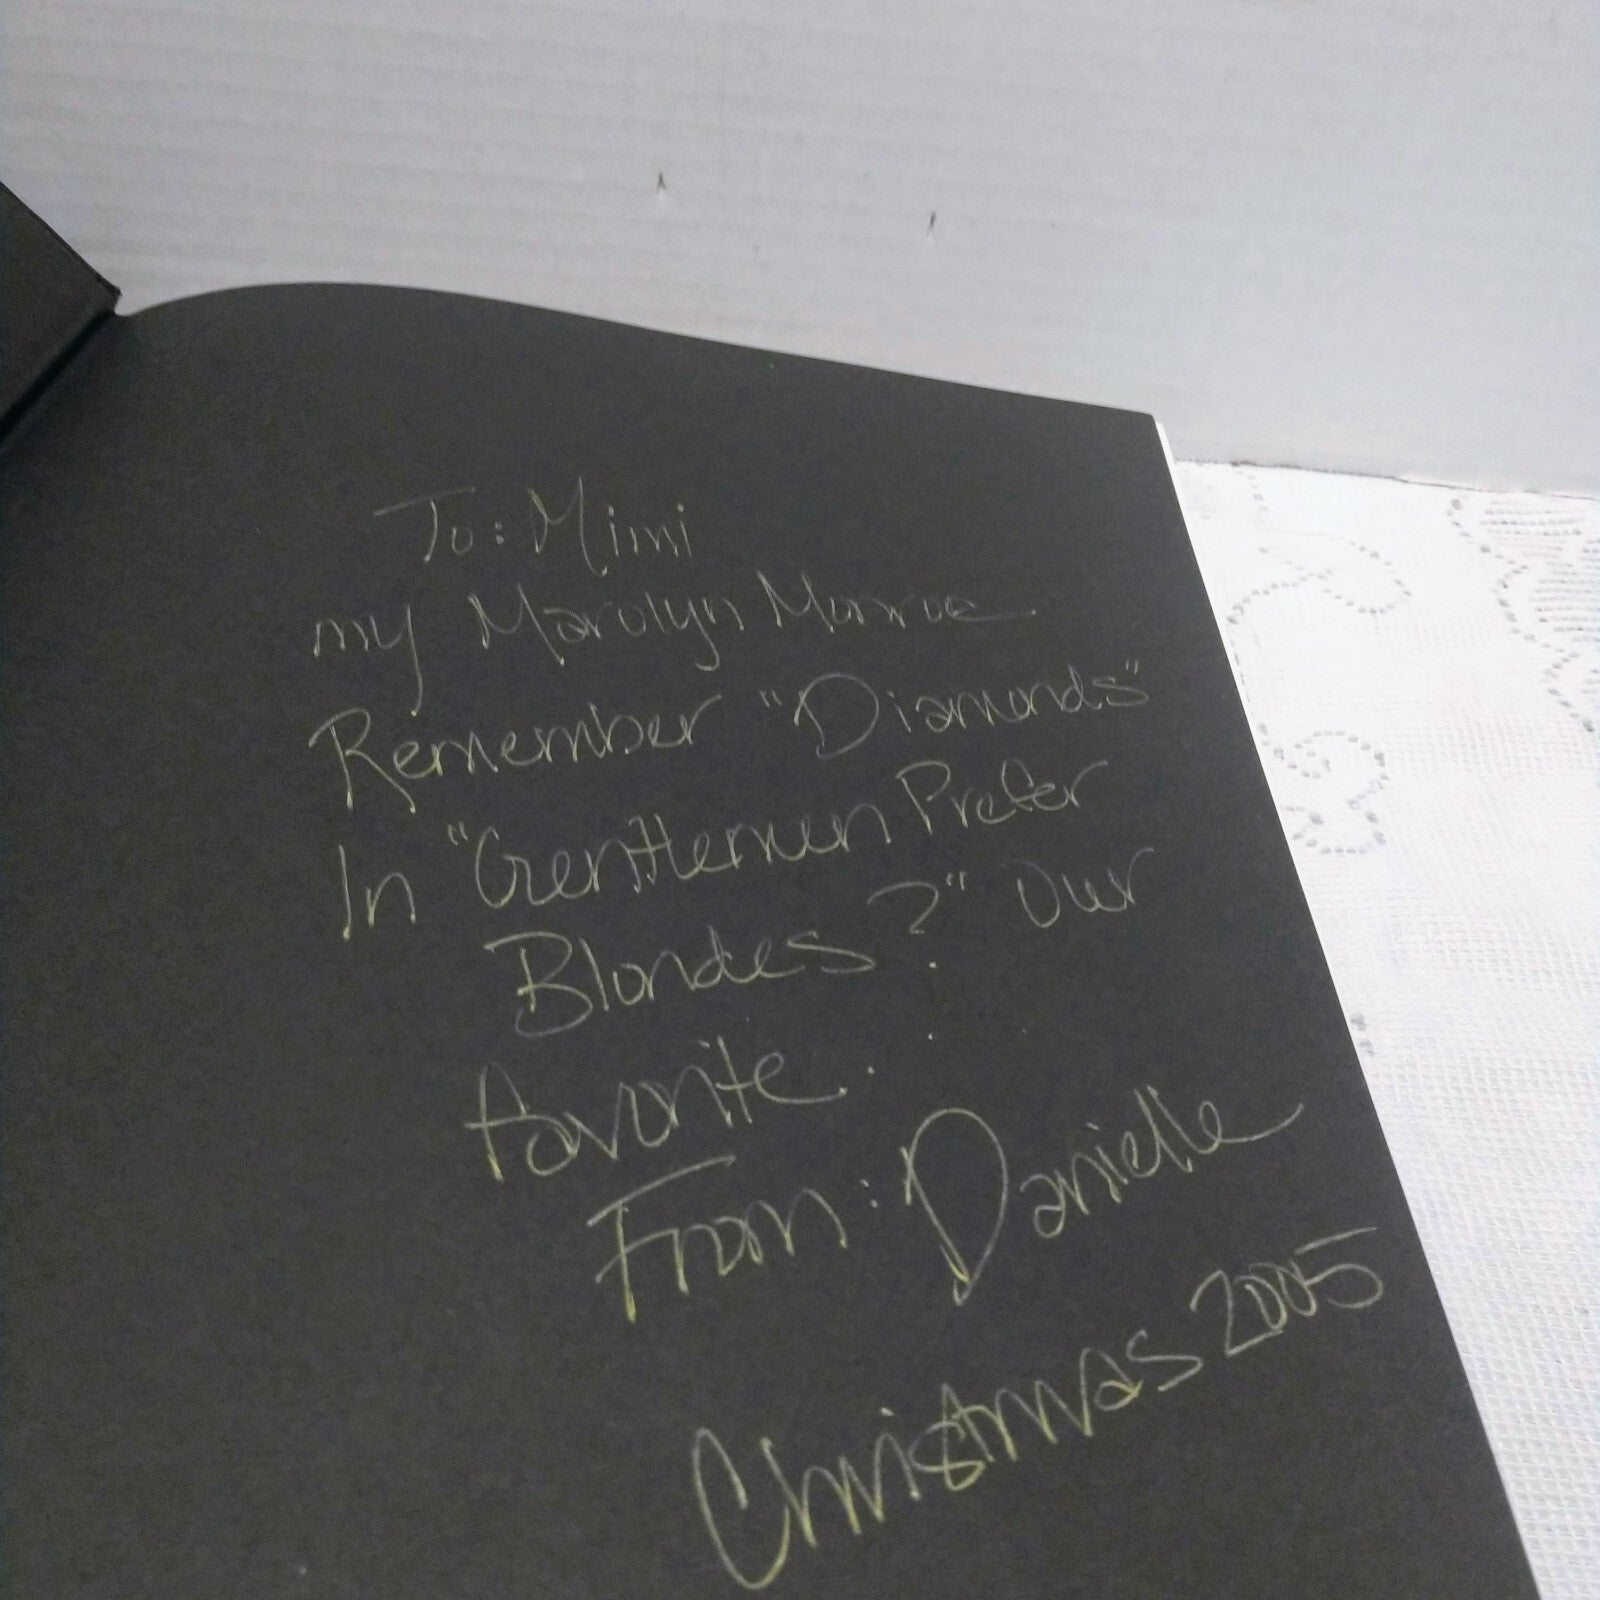 To: Mimi
my Marolyn Monroe
Remember "Diamonds"
In "Gentlemen Prefer
Blondes?" Our
favorite..
From: Danielle
Christmas 2005